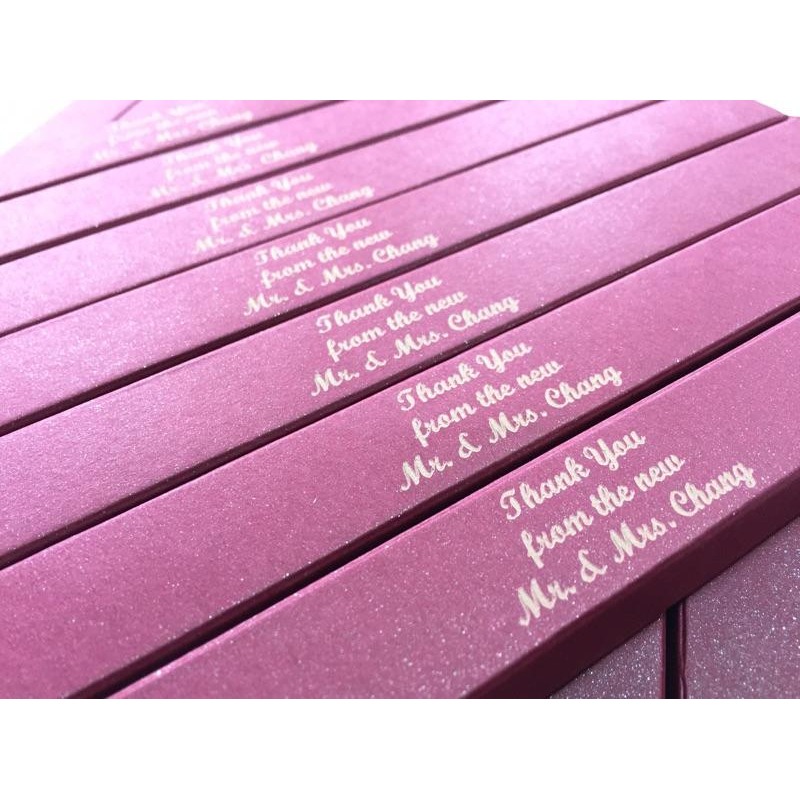 Thank You
from the new
Mr. & Mrs. Chang
Thank You
from the new
Mr. & Mrs. Chang
Thank You
from the new
Mr. & Mrs. Chang
Thank You
from the new
Mr. & Mrs. Chang
Thank You
from the new
Mr. & Mrs. Chang
Thank You
from the new
Mr. & Mrs. Chang
Thank You
from the new
Mr. & Mrs. Chang